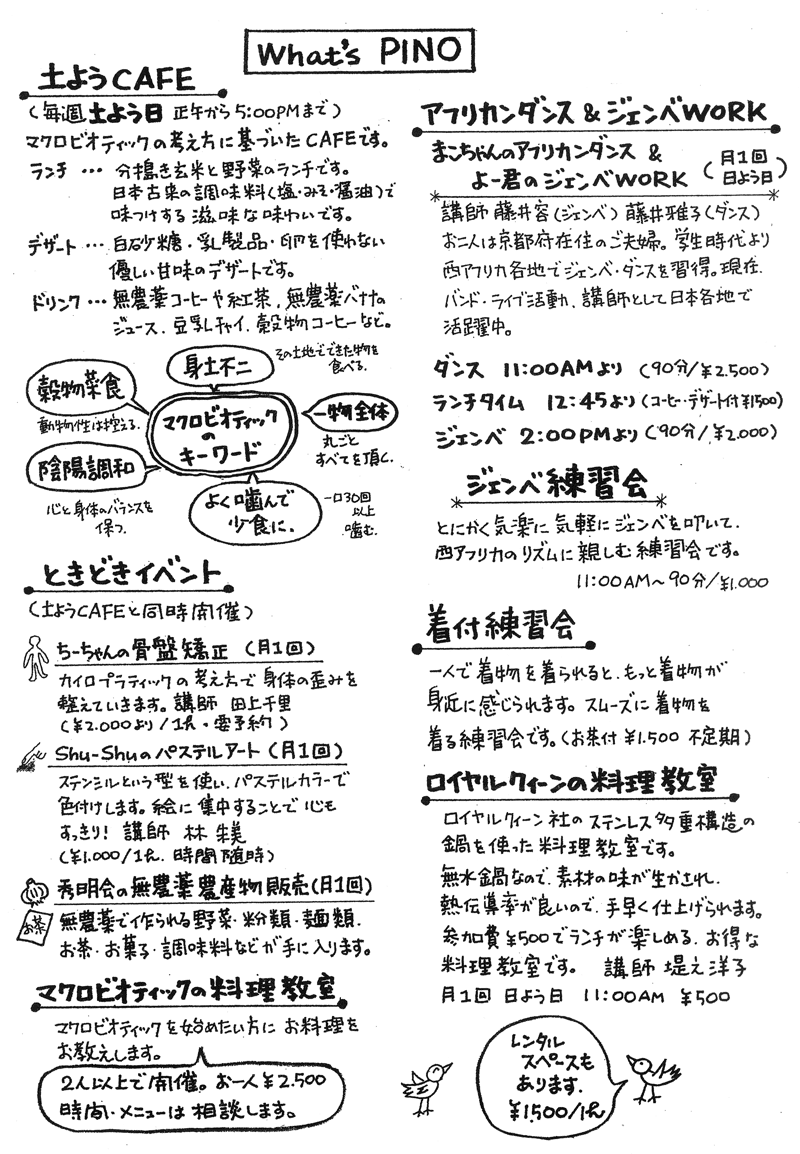 What's PINO
土ようCAFE
(毎週土よう日 正午から5:00PMまで)
マクロビオティックの考え方に基づいたCAFEです。
ランチ … 分搗き玄米と野菜のランチです。
日本古来の調味料(塩・みそ・醤油)で
味つけする滋味な味わいです。
デザート … 白砂糖・乳製品・卵を使わない
優しい甘味のデザートです。
ドリンク … 無農薬コーヒーや紅茶、無農薬バナナの
ジュース、豆乳チャイ、穀物コーヒーなど。
身土不二
その土地でできた物を
食べる。
穀物菜食
動物性は控える。
マクロビオティック
の
キーワード
一物全体
丸ごと
すべてを頂く。
陰陽調和
心と身体のバランスを
保つ。
よく噛んで
少食に。
一口30回
以上
噛む。
ときどきイベント
(土ようCAFEと同時開催)
ちーちゃんの骨盤矯正 (月1回)
カイロプラティックの考え方で身体の歪みを
整えていきます。講師 田上千里
(¥2.000より/1h・要予約)
Shu-Shuのパステルアート(月1回)
ステンシルという型を使い、パステルカラーで
色付けします。絵に集中することで心も
すっきり! 講師 林 朱美
(¥1.000/1h. 時間随時)
秀明会の無農薬農産物販売(月1回)
お茶
無農薬で作られる野菜・粉類・麺類.
お茶・お菓子・調味料などが手に入ります。
マクロビオティックの料理教室
マクロビオティックを始めたい方にお料理を
お教えします。
2人以上で開催。お一人¥2.500
時間・メニューは相談します。
アフリカンダンス&ジェンベWORK
まこちゃんのアフリカンダンス &
よー君のジェンベWORK
(月1回
日よう日)
講師 藤井容(ジェンベ) 藤井雅子(ダンス)
お二人は京都府在住のご夫婦。学生時代より
西アフリカ各地でジェンベ・ダンスを習得。現在、
バンド・ライブ活動、講師として日本各地で
活躍中。
ダンス 11:00AMより (90分/¥2.500)
ランチタイム 12:45より(コーヒー・デザート付¥1500)
ジェンベ 2:00PMより(90分/¥2.000)
ジェンベ練習会
とにかく気楽に気軽にジェンベを叩いて、
西アフリカのリズムに親しむ練習会です。
11:00AM〜90分/¥1.000
着付練習会
一人で着物を着られると、もっと着物が
身近に感じられます。スムーズに着物を
着る練習会です。(お茶付¥1.500 不定期)
ロイヤルクィーンの料理教室
ロイヤルクィーン社のステンレス多重構造の
鍋を使った料理教室です。
無水鍋なので、素材の味が生かされ、
熱伝導率が良いので、手早く仕上げられます。
参加費¥500でランチが楽しめる、お得な
料理教室です。 講師 堤之洋子
月1回 日よう日 11:00AM ¥500
レンタル
スペースも
あります.
¥1.500/1h